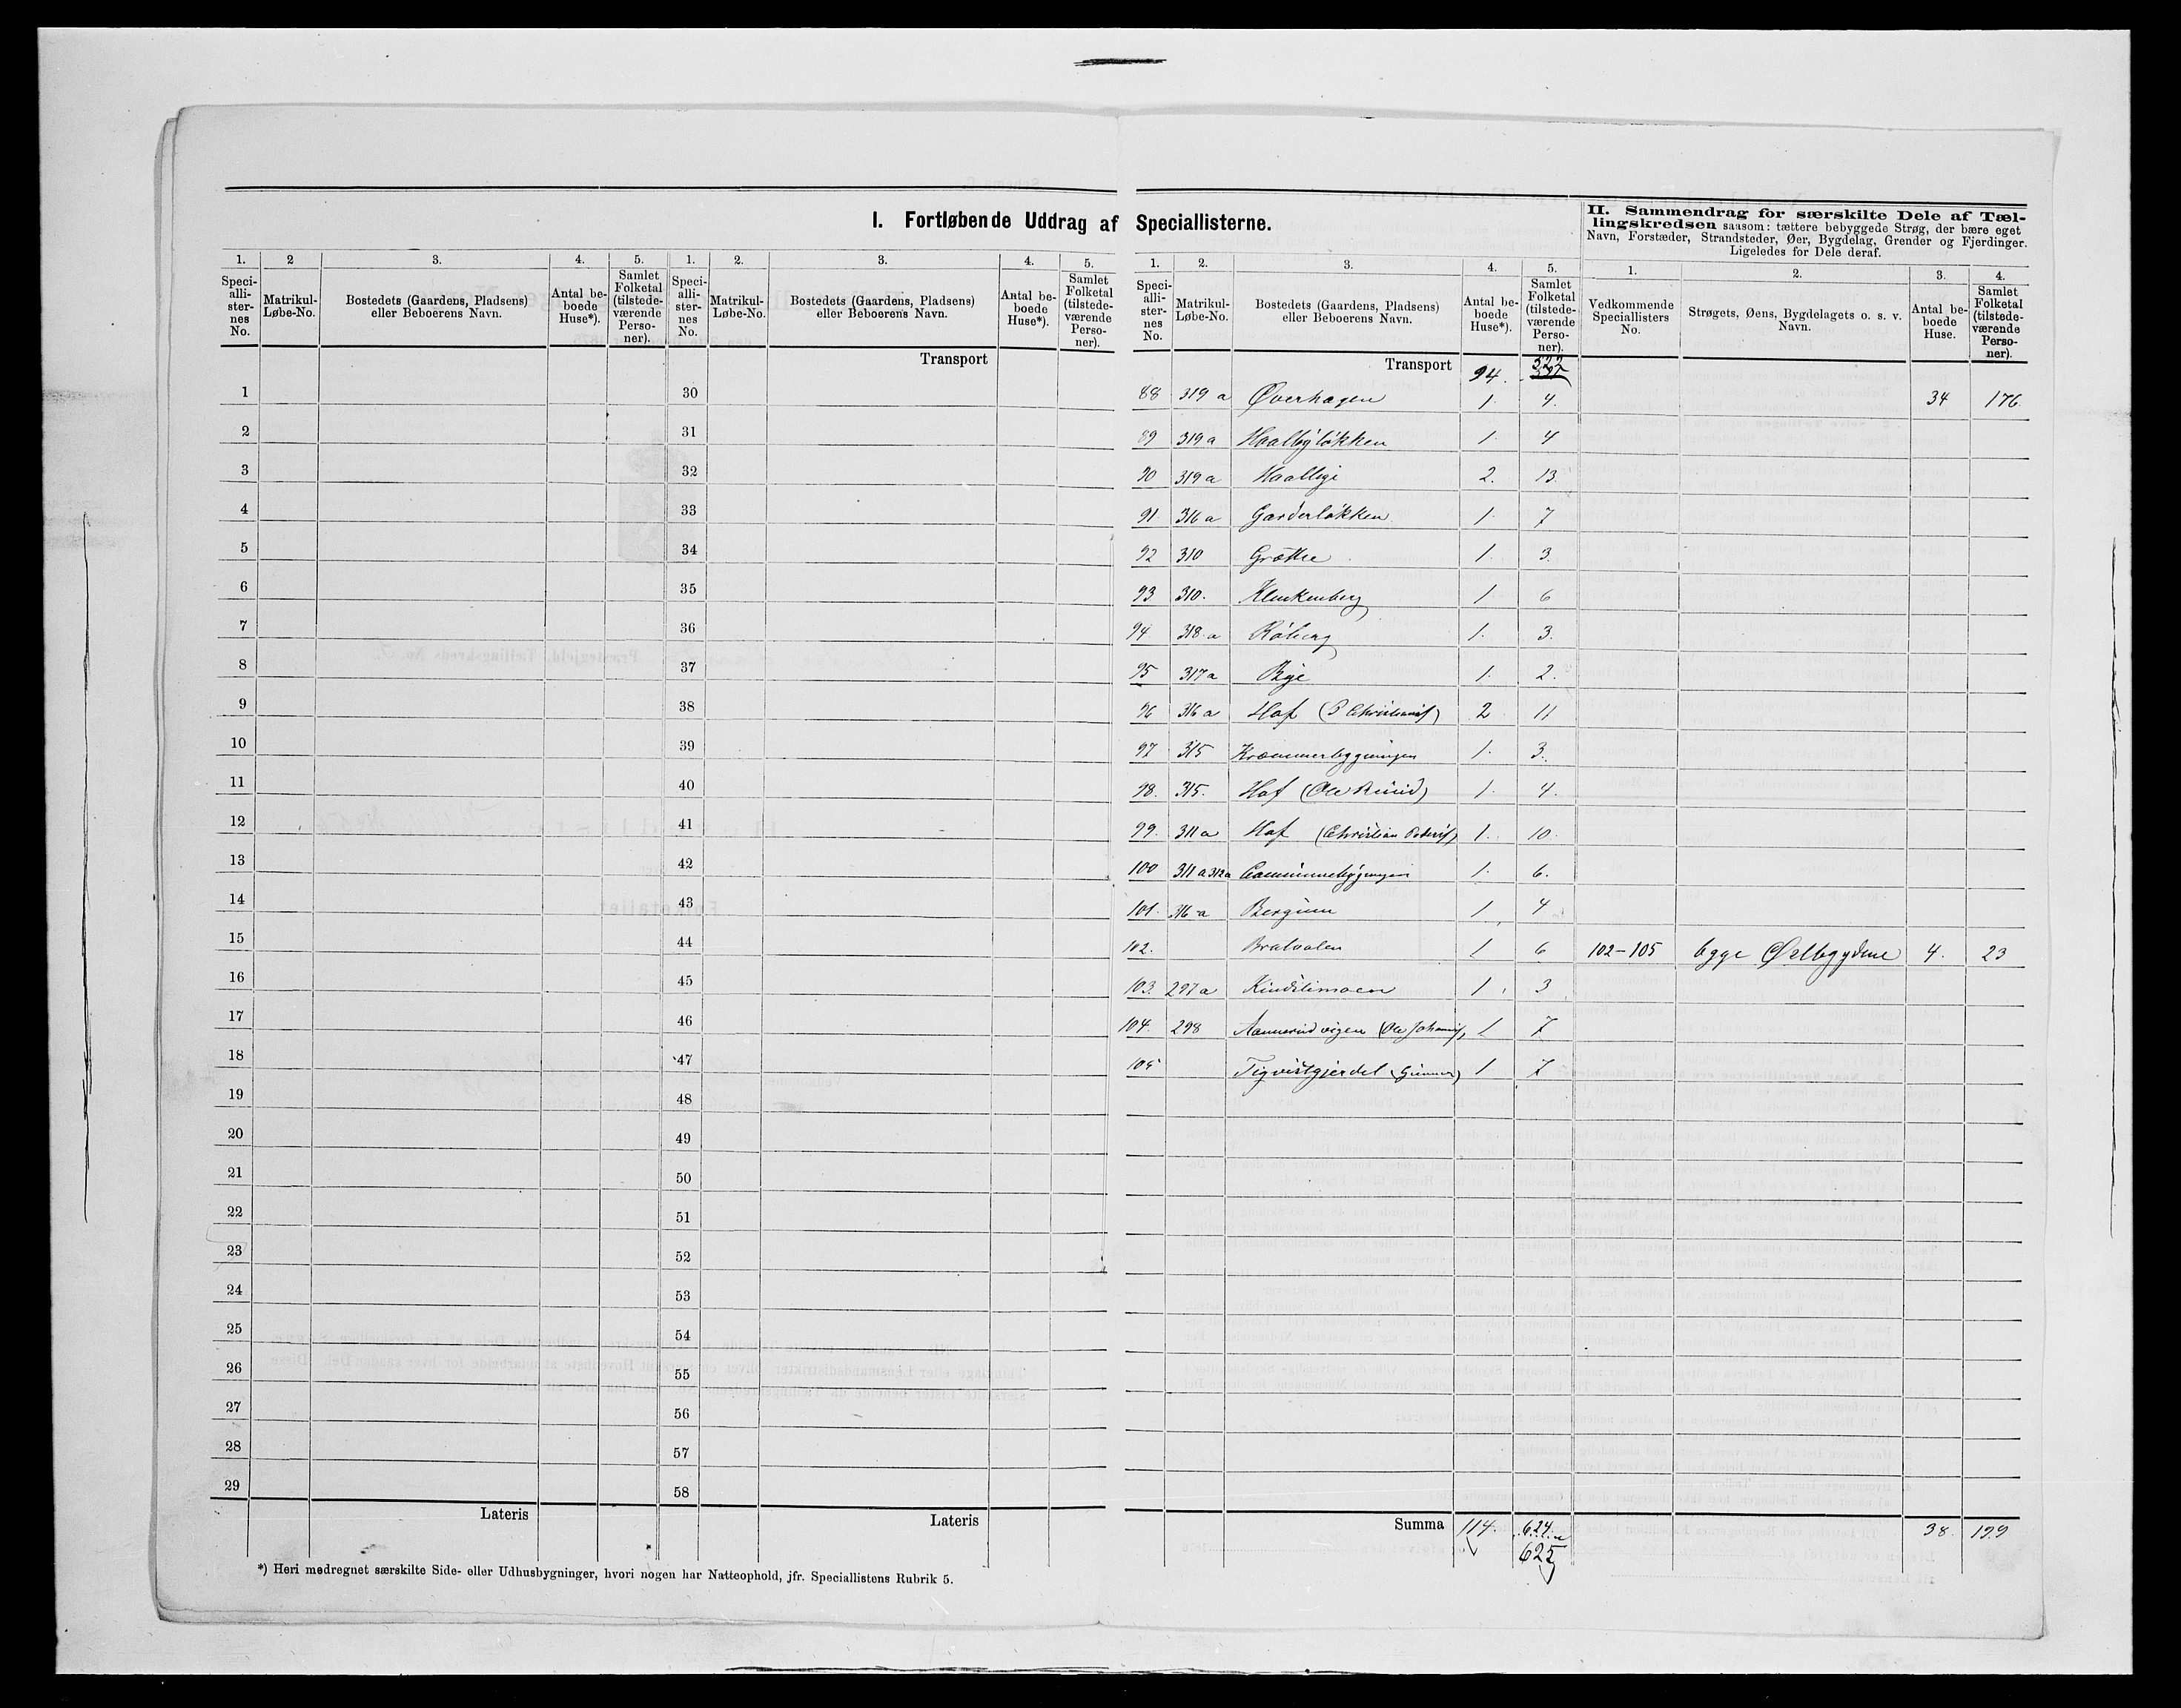 I. Fortløbende Uddrag af Speciallisterne.
II. Sammendrag for særskilte Dele af Tællingskredsen saasom: tættere bebyggede Strøg, der bære eget
Navn, Forstæder, Strandsteder, Øer, Bygdelag, Grender og Fjerdinger.
Ligeledes for Dele deraf.
1. 2 3. 4. 5. 1. 2. 3. 4. 5.
Speciallisternes No. Matrikul-Løbe-No. Bostedets (Gaardens, Pladsens) eller Beboerens Navn. Antal beboede Huse*). Samlet Folketal (tilstedeværende Personer).
Speciallisternes No. Matrikul-Løbe-No. Bostedets (Gaardens, Pladsens) eller Beboerens Navn. Antal beboede Huse*). Samlet Folketal (tilstedeværende Personer).
Transport
1 30
2 31
3 32
4 33
5 34
6 35
7 36
8 37
9 38
10 39
11 40
12 41
13 42
14 43
15 44
16 45
17 46
18 47
19 48
20 49
21 50
22 51
23 52
24 53
25 54
26 55
27 56
28 57
29 58
Lateris Lateris
*) Heri medregnet særskilte Side- eller Udhusbygninger, hvori nogen har Natteophold, jfr. Speciallistens Rubrik 5.
1. 2. 3. 4. 5. 1. 2. 3. 4.
Speciallisternes No. Matrikul-Løbe-No. Bostedets (Gaardens, Pladsens) eller Beboerens Navn. Antal beboede Huse*). Samlet Folketal (tilstedeværende Personer).
Vedkommende Speciallisters No. Strøgets, Øens, Bygdelagets o. s. v. Navn. Antal beboede Huse. Samlet Folketal (tilstedeværende Personer).
Transport 94. 522
88 319 a Øverhagen 1. 4. 34 176
89 319 a Haalbyløkken 1. 4
90 319 a Haalbyi 2. 13
91 316 a Garderløkken 1. 7
92 310 Grøtte 1. 3.
93 310. Klenkenberg 1 6
94 318 a Røberg 1. 3.
95 317 a Bye 1. 2.
96 316 a Hof (P Christians) 2 11
97 315 Kræmmerbygningen 1. 3.
98. 315. Hof (Ole Ruud) 1. 4.
99. 311 a Hof (Christian Peders) 1. 10.
100 311 a 312 a 1. 6.
101. 316 a Bergum 1 4
102. Bratvolen 1 6 102-105 4. 23
103. 297 a Kindlimoen 1 3
104. 298 (Ole Johannes) 1 7
105 (Gunner) 1 7
Summa 114. 624. 38. 199
625